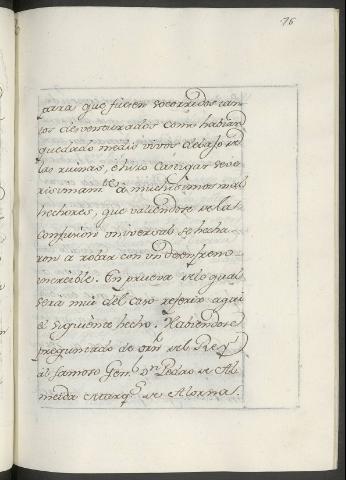 76
para que fuesen socorridos tan-
tos desventurados como habian
quedado medio vivos debajo de
las ruinas, è hizo castigar seve-
risimam.te à muchisimos mal-
hechores, que valiendose de la
confusion universal se hecha-
ron à robar con un desenfreno
increible. En prueva de lo qual
serà mui del caso referir aqui
el siguiente hecho. Habiendose
preguntado de orn. del Rey
al famoso Gen.l Dn. Pedro de Al-
meida Marq.s de Alorna.